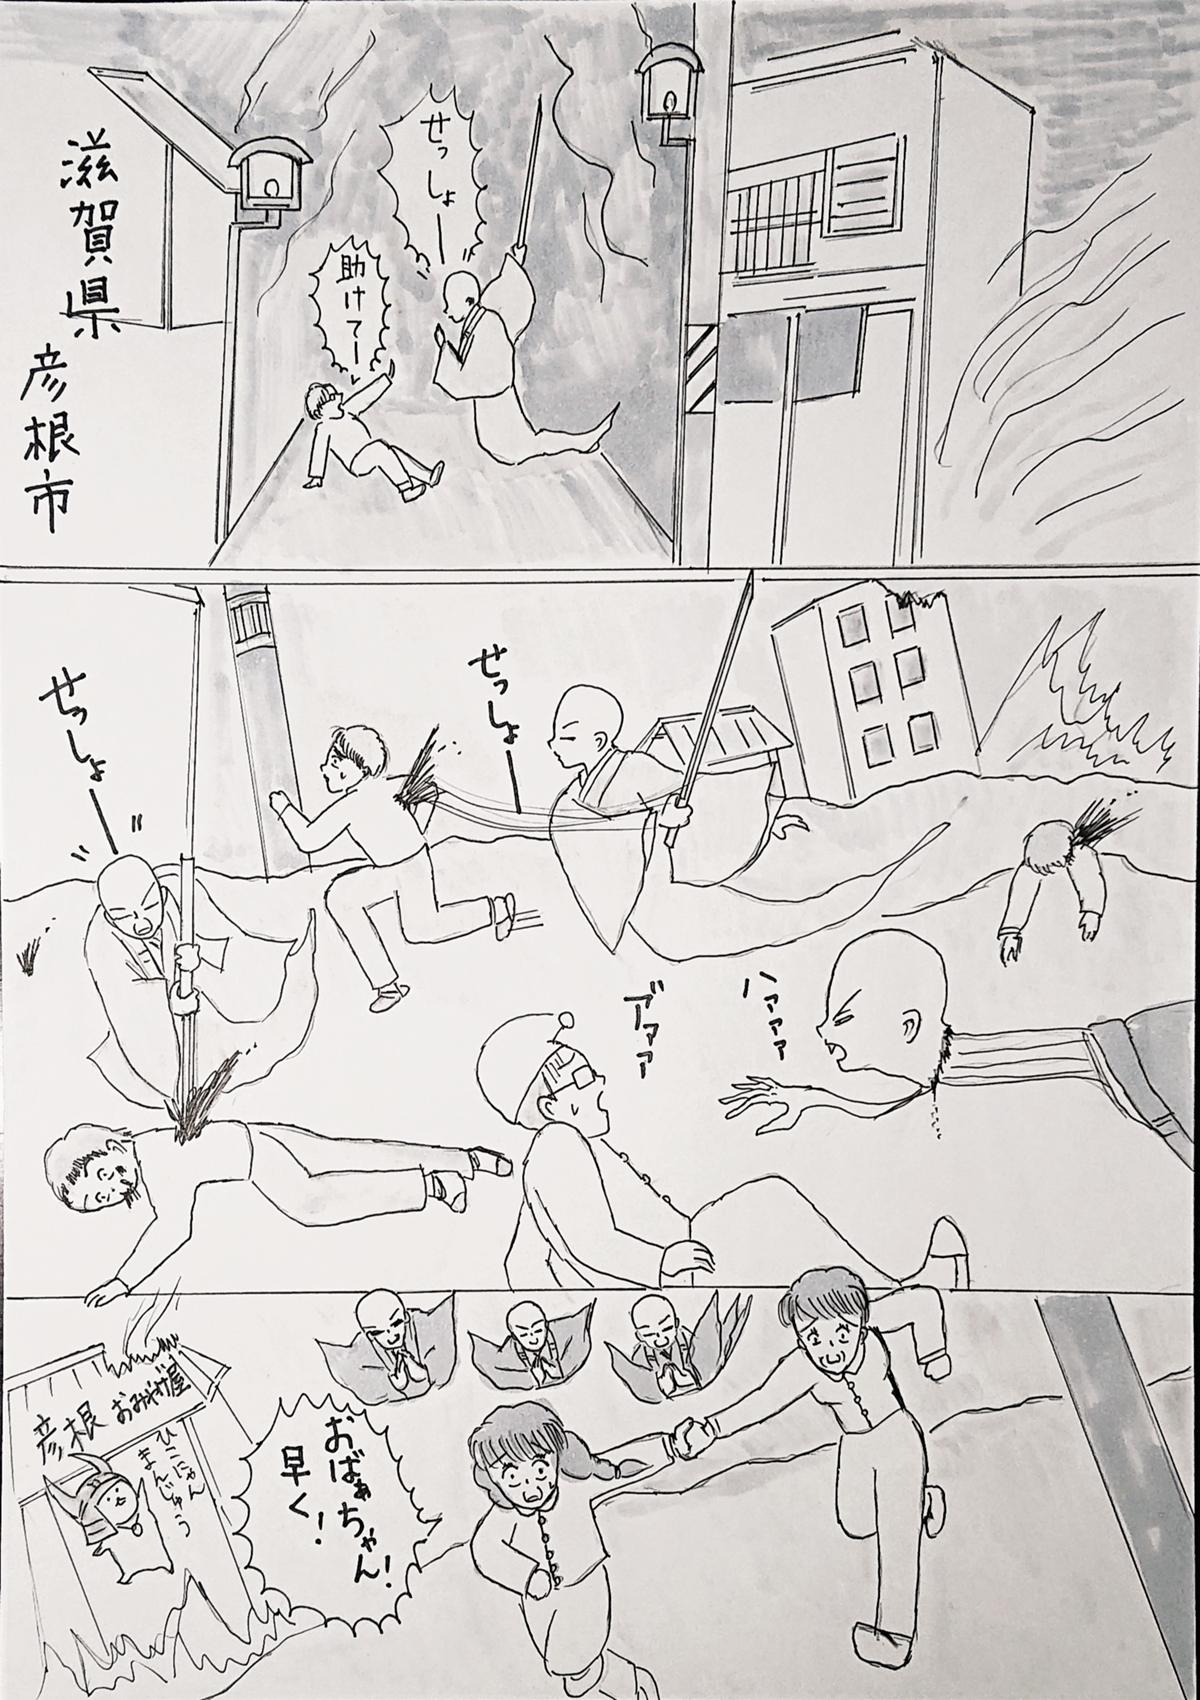 せっしょー
助けてー
滋賀県
彦根市
せっしょー
せっしょー
ハァァァ
ブァァァ
おばぁちゃん!
早く!
彦根おみやげ屋
ひこにゃん
まんじゅう